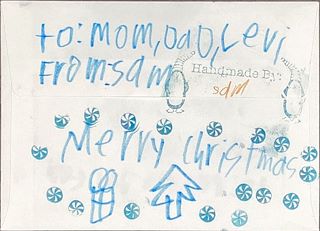 to: Mom, DaD, Levi,
From: sdm
Handmade By:
sdm
Merry Christmas